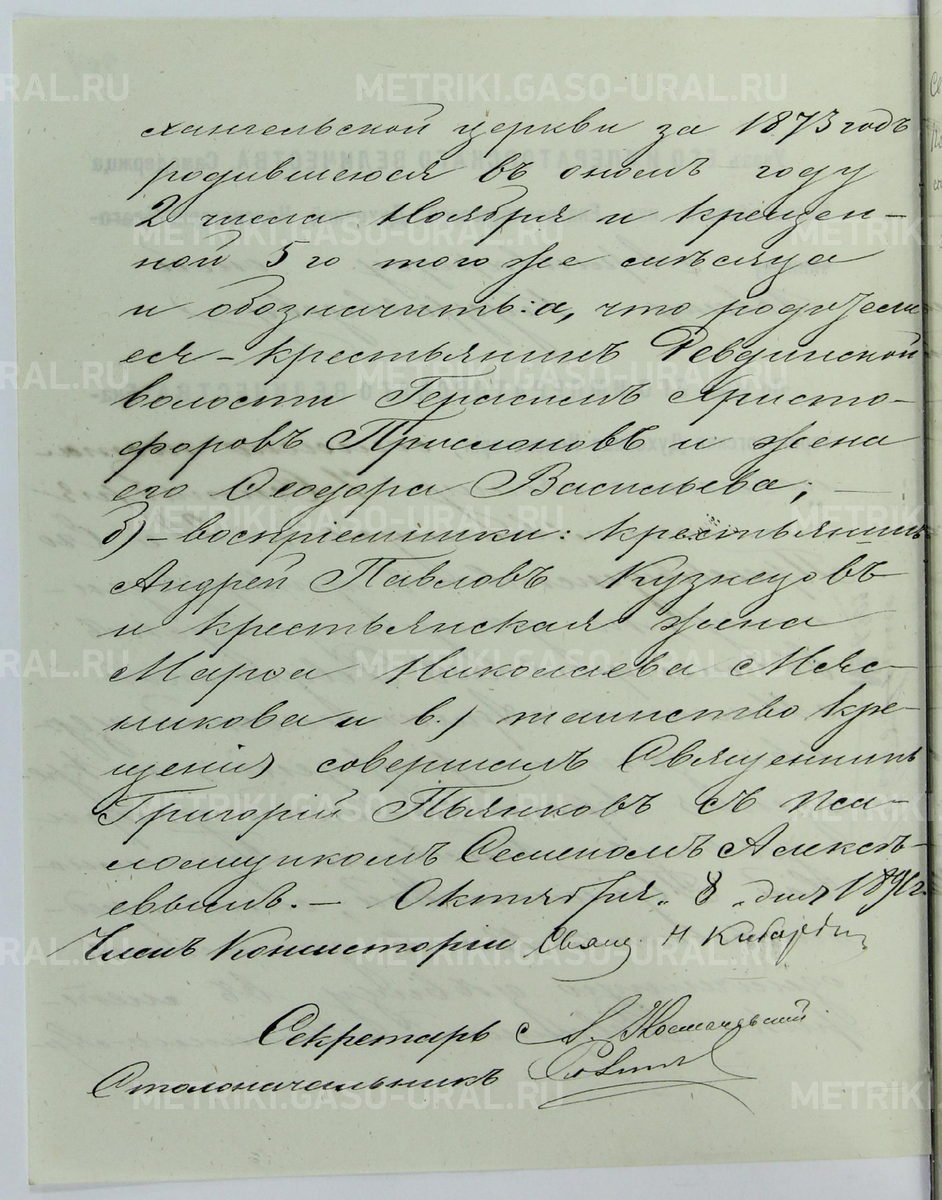 хангельской церкви за 1873 годъ
родившеюся въ ономъ году
2 числа Ноября и крещен-
ной 5го того же мѣсяца
и обозначить: а, что родители
ея - крестьянинъ Ревдинской
волости Герасимъ Христо-
форовъ Прислоновъ и жена
его Ѳеодора Васильева; —
б) - воспріемники: крестьянинъ
Андрей Павловъ Кузнецовъ
и крестьянская жена
Марѳа Николаева Мяс-
никова и в.) таинство кре-
щенія совершалъ Священникъ
Григорій Пьянковъ съ пса-
ломщикомъ Семеномъ Алексѣ-
евымъ. — Октября „ 8 „ дня 189 г.
Членъ Консисторіи Свящ. Н
Секретарь
Столоначальникъ
METRIKI.GASO-URAL.RU